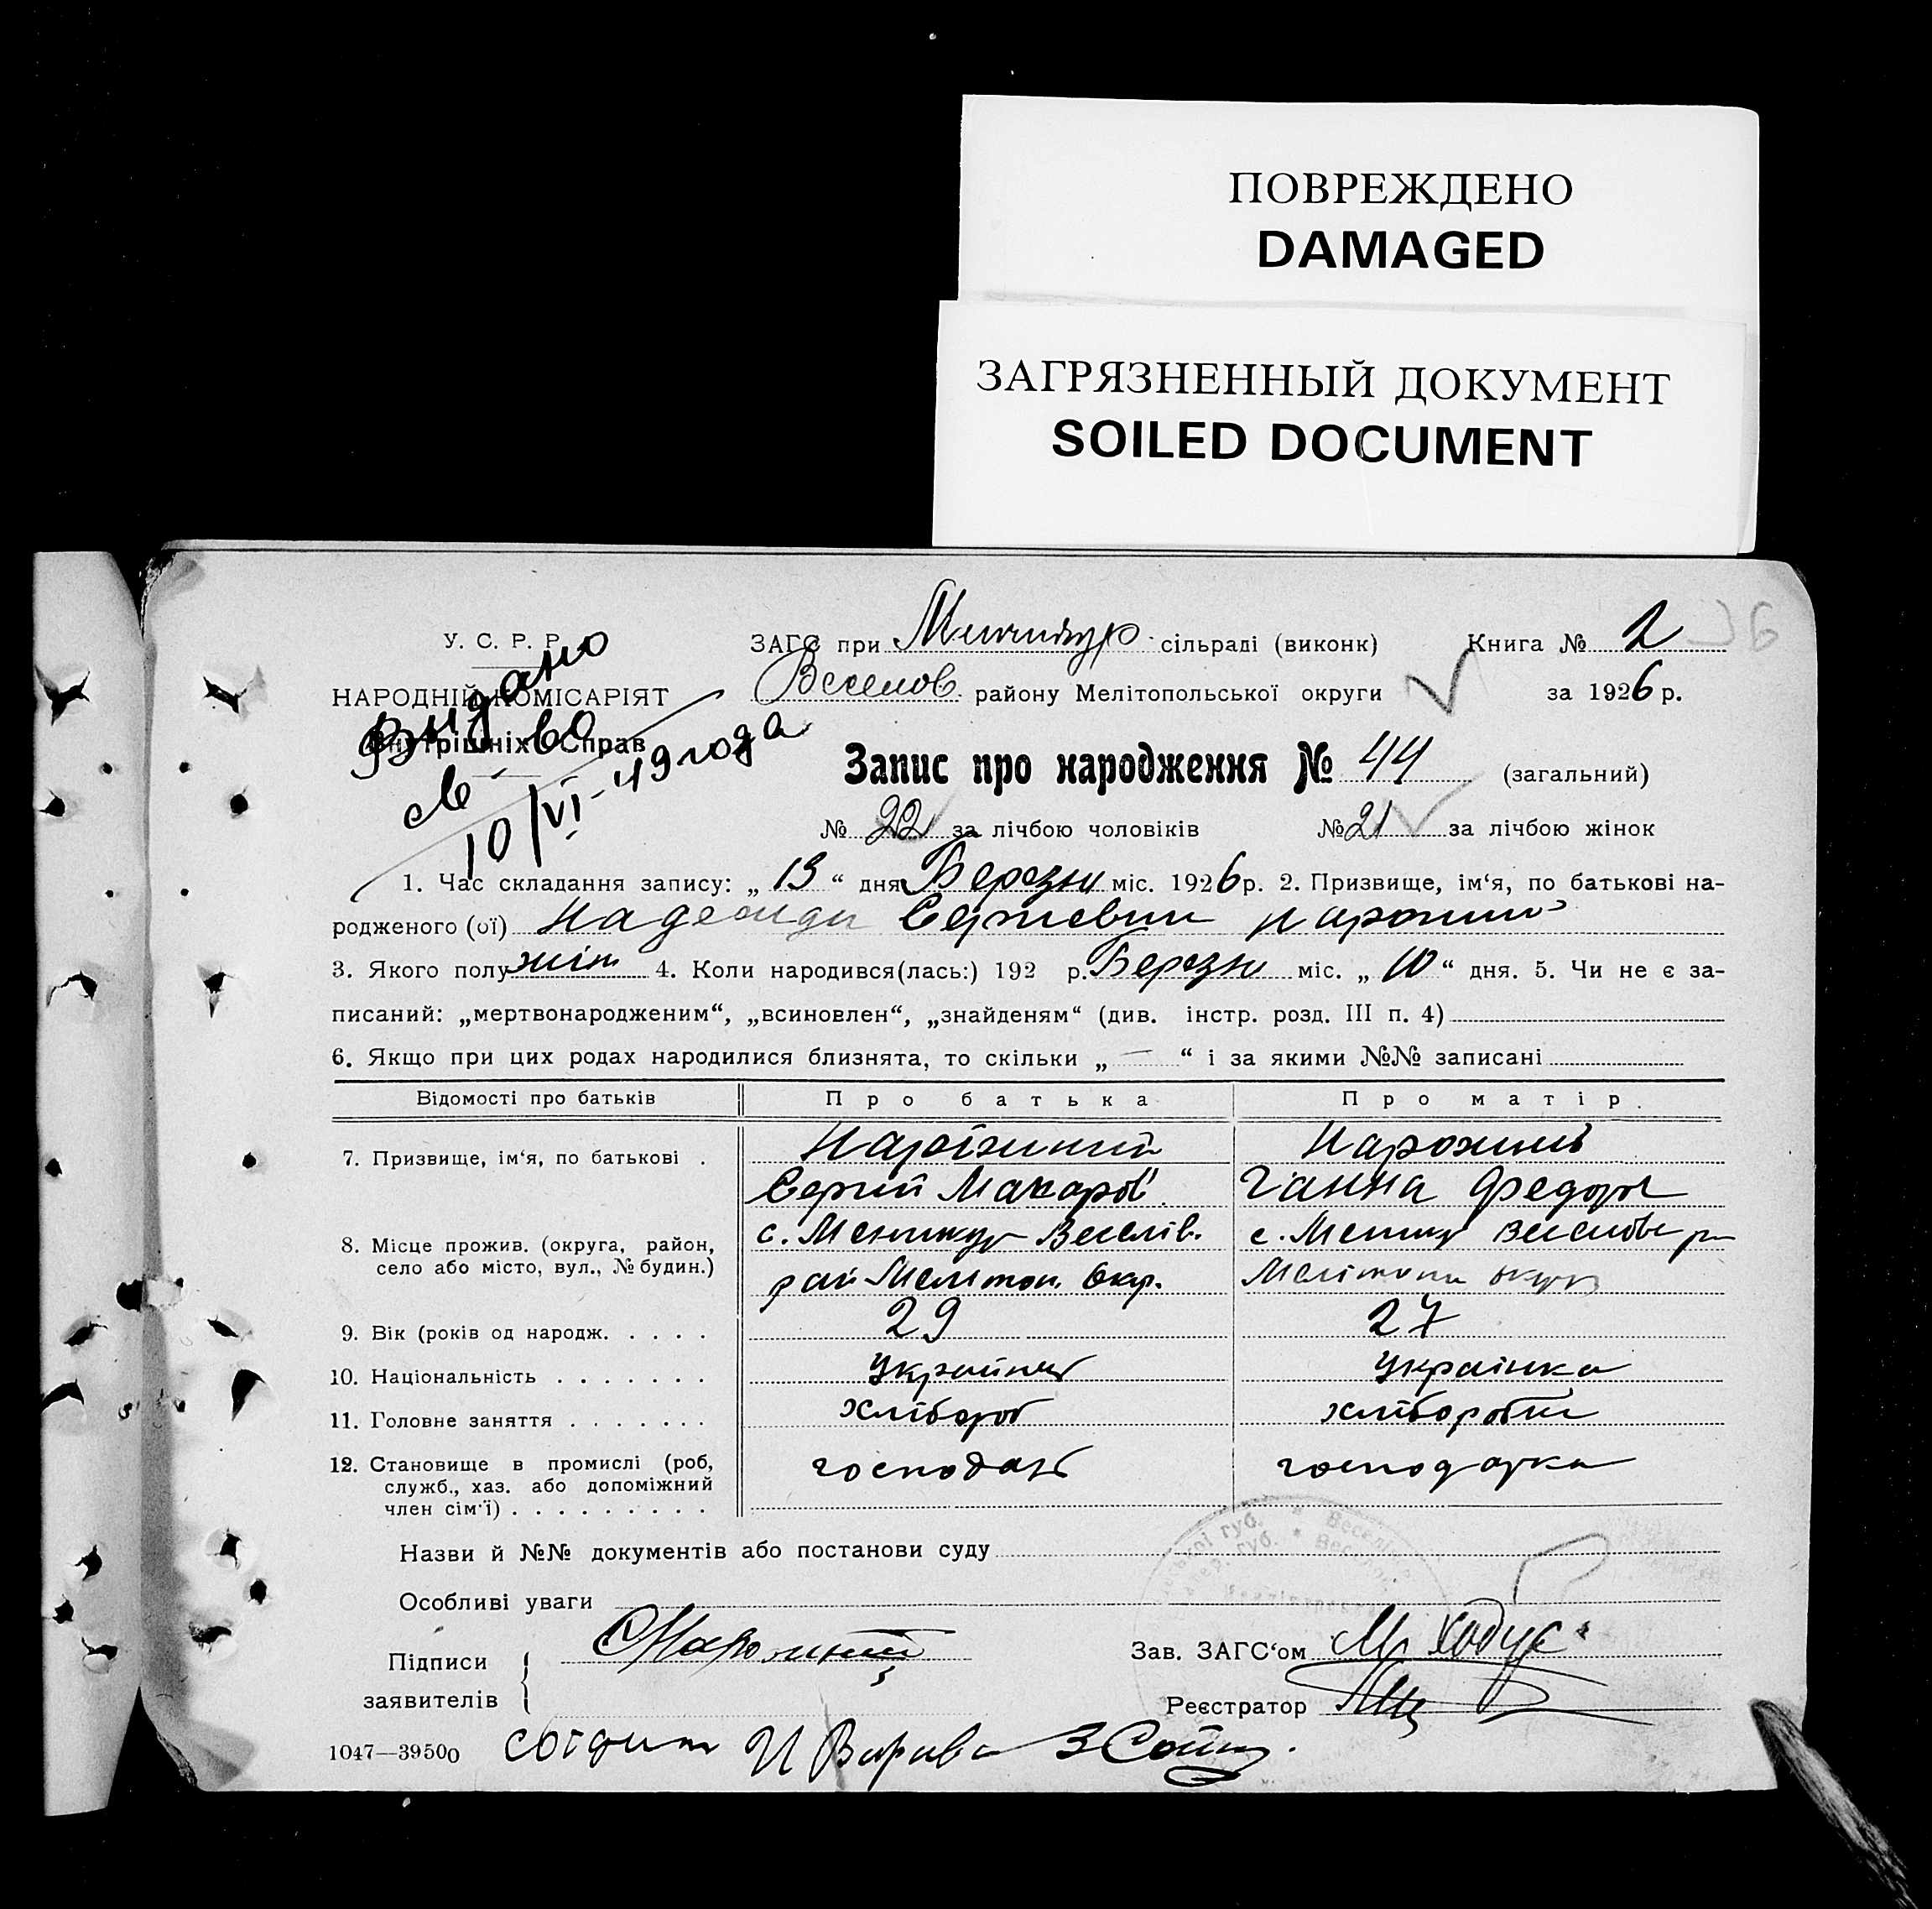 ПОВРЕЖДЕНО
DAMAGED
ЗАГРЯЗНЕННЫЙ ДОКУМЕНТ
SOILED DOCUMENT
36
У. С. Р. Р.
НАРОДНІЙ КОМІСАРІЯТ
Внутрішніх Справ
Видано
св-во
10/VI-49 года
ЗАГС при сільраді (виконк) Книга № 2
Веселов району Мелітопольської округи за 1926 р.
Запис про народження № 44 (загальний)
№ 22 за лічбою чоловіків № 21 за лічбою жінок
1. Час складання запису: „ 13 “ дня Березня міс. 1926 р. 2. Призвище, ім‘я, по батькові на-
родженого (ої) Надежда
3. Якого полу жін 4. Коли народився(лась:) 192 р. Березня міс. „ 10 “ дня. 5. Чи не є за-
писаний: „мертвонародженим“, „всиновлен“, „знайденям“ (див. інстр. розд. III п. 4)
6. Якщо при цих родах народилися близнята, то скільки „ — “ і за якими №№ записані
Відомості про батьків Про батька Про матір.
7. Призвище, ім‘я, по батькові .
Сергій Макаров Ганна Федоров
8. Місце прожив. (округа, район,
село або місто, вул., № будин.)
с. Веселів. с.
рай Мелітоп. Окр.
9. Вік (років од народж. . . . . 29 27
10. Національність . . . . . . . Українец Українка
11. Головне заняття . . . . . . . хлібороб хліборобка
12. Становище в промислі (роб,
служб., хаз. або допоміжний
член сім‘ї) . . . . . . . . .
господарь господарка
Назви й №№ документів або постанови суду
Особливі уваги
Підписи
заявителів
Зав. ЗАГС‘ом М. Ходус
Реєстратор
1047—39500